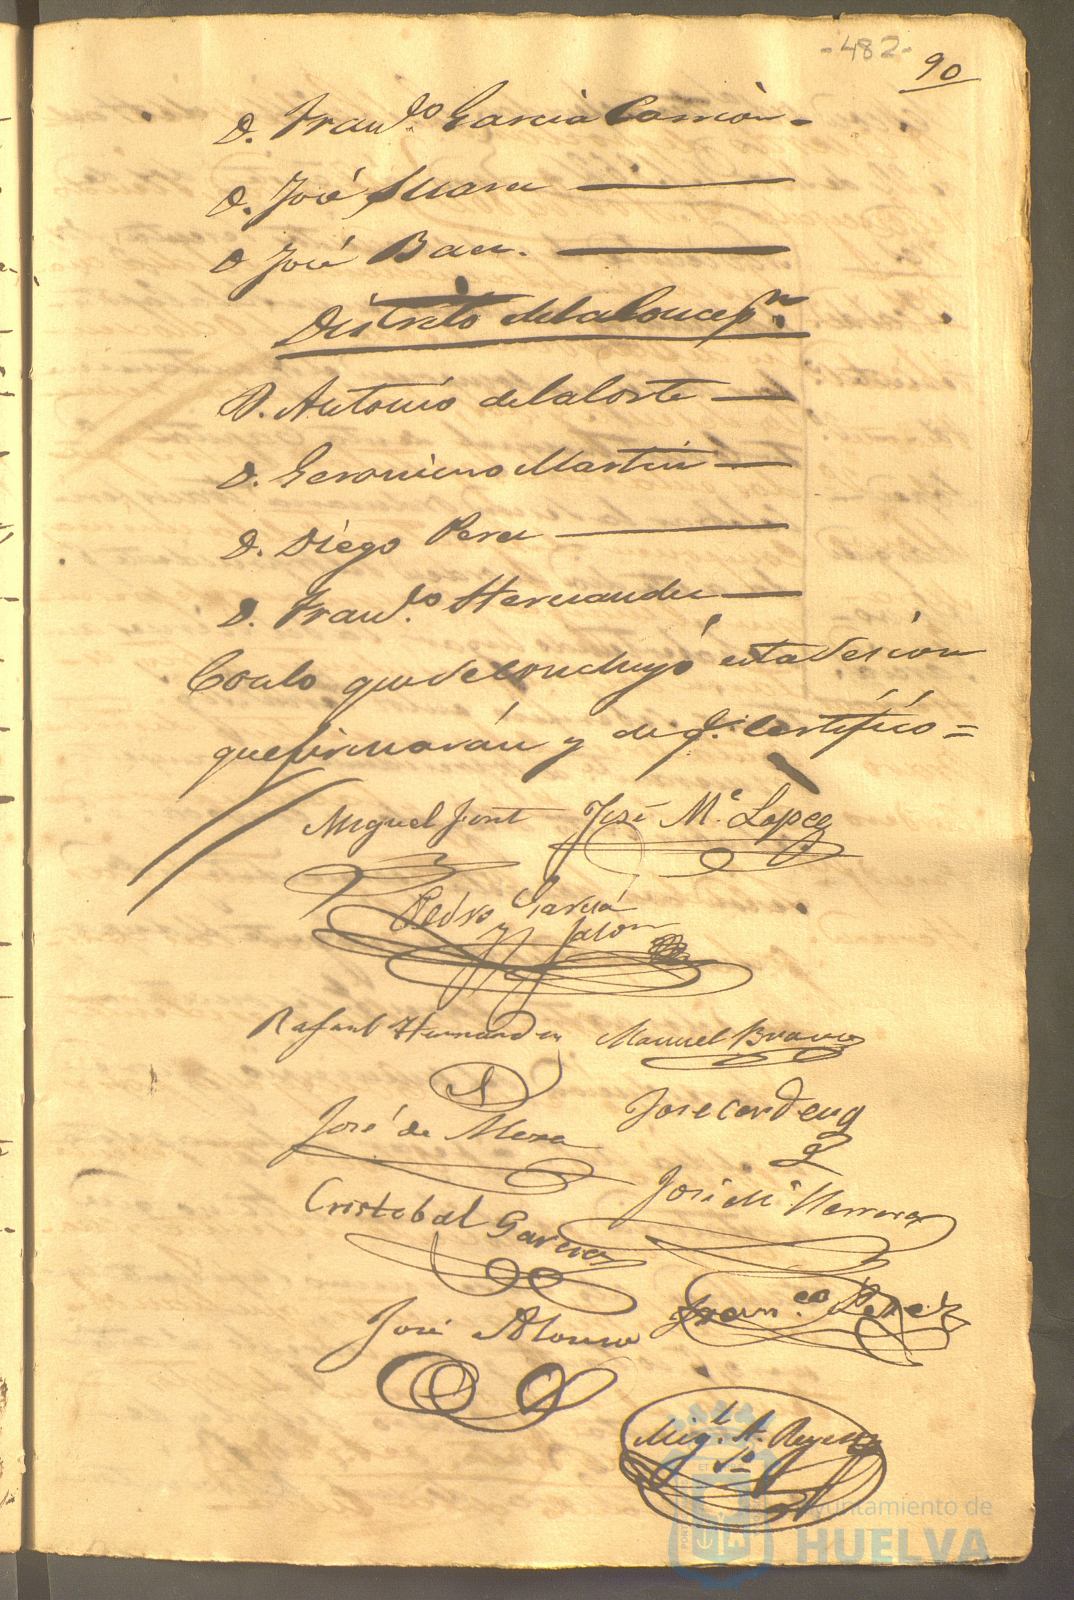 -482-
90
D. Fran.co Garcia Carrion
D. José Suarez
D José Baez.
Distrito de la Concep.n
D. Antonio de la Corte
D. Geronimo Martin
D. Diego Perez
D. Fran.co Hernandez
Con lo que se concluyó esta Sesion
que firmarán y de q.e certifico =
Miguel Font José M.ª Lopez
Pedro Garcia
y Jalon
Rafael Hernandez Manuel Bravo
José de Mora Jose Cardenas
Cristobal Garcia José M.ª Herrera
José Alonso Fran.co Perez
Mig.l A. Reyes
S.o
Ayuntamiento de
HUELVA